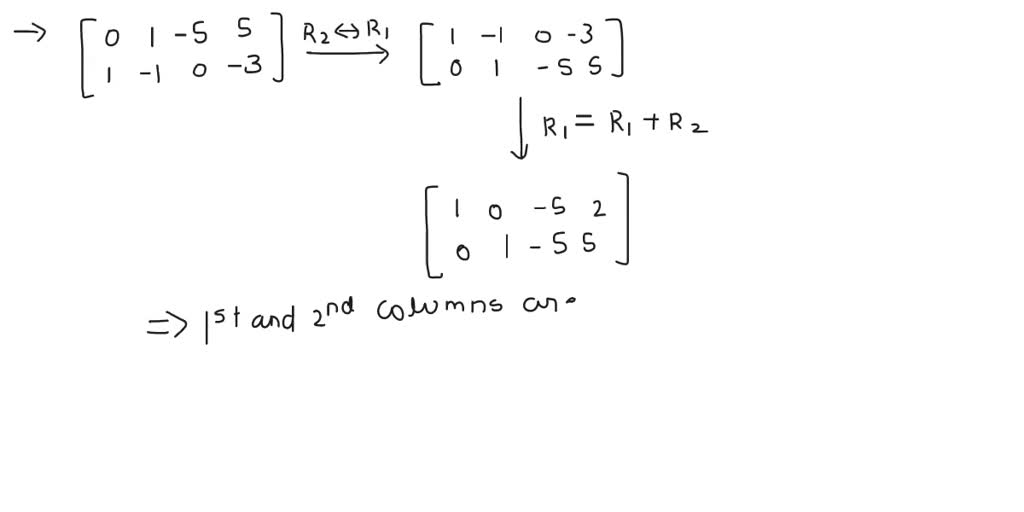 → [ 0 1 -5 5 ] R2 ⇔ R1 → [ 1 -1 0 -3 ]
[ 1 -1 0 -3 ] [ 0 1 -5 5 ]
↓ R1 = R1 + R2
[ 1 0 -5 2 ]
[ 0 1 -5 5 ]
=> 1st and 2nd columns are